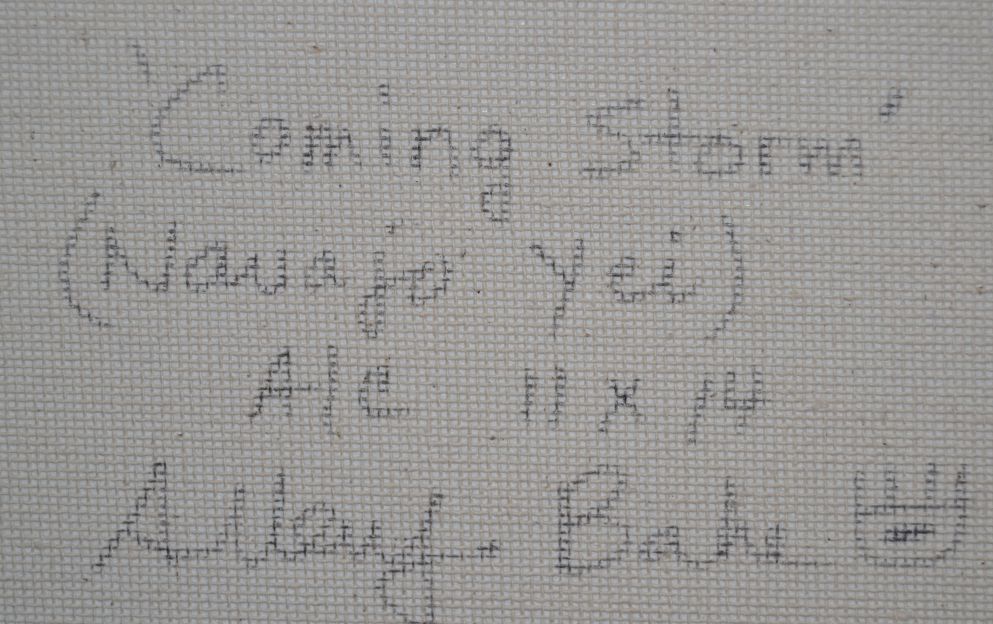 'Coming Storm'
(Navajo Yei)
A/c 11 x 14
Bahe